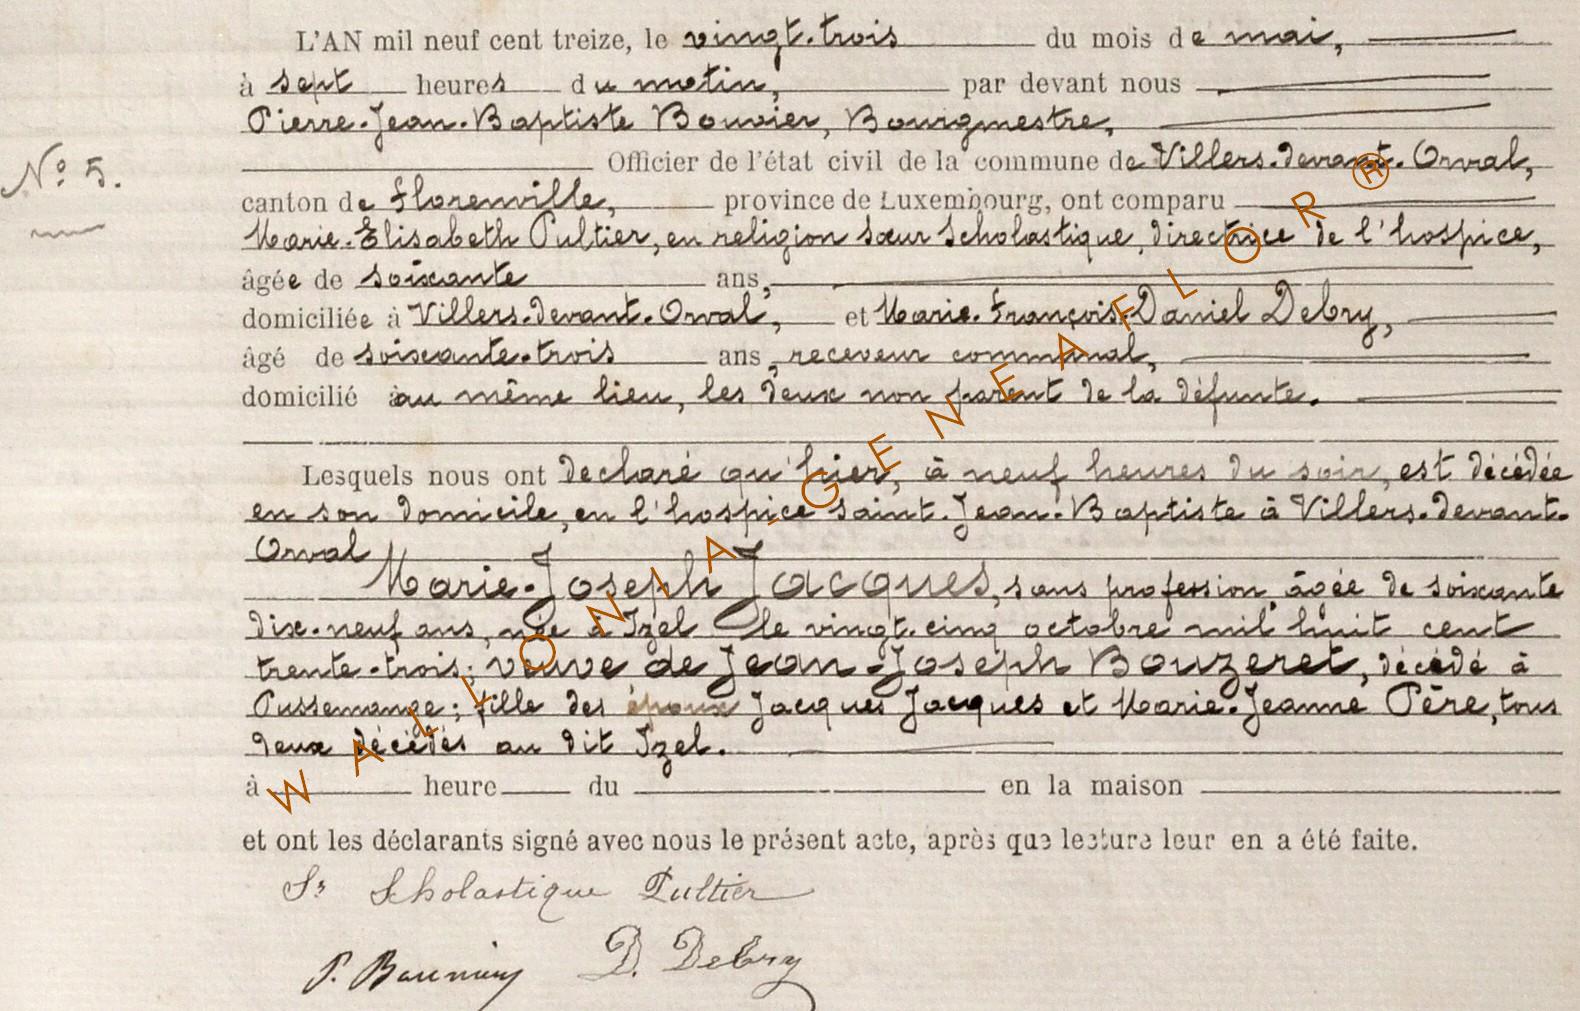 L'AN mil neuf cent treize, le vingt-trois du mois de mai,
à sept heures du matin, par devant nous
Pierre-Jean-Baptiste Bouvier, Bourgmestre,
N° 5.
Officier de l'état civil de la commune de Villers-devant-Orval,
canton de Florenville, province de Luxembourg, ont comparu
Marie-Elisabeth Pultier, en religion sœur Scholastique, directrice de l'hospice,
âgée de soixante ans,
domiciliée à Villers-devant-Orval, et Marie-François-Daniel Debry,
âgé de soixante-trois ans, receveur communal,
domicilié au même lieu, les deux non parent de la défunte.
Lesquels nous ont déclaré qu'hier, à neuf heures du soir, est décédée
en son domicile, en l'hospice Saint-Jean-Baptiste à Villers-devant-
Orval
Marie-Joseph Jacques, sans profession, âgée de soixante
dix-neuf ans, née à Izel le vingt-cinq octobre mil huit cent
trente-trois; veuve de Jean-Joseph Bouzeret, décédé à
Pussemange; fille des époux Jacques Jacques et Marie-Jeanne Père, tous
deux décédés au dit Izel.
à heure du en la maison
et ont les déclarants signé avec nous le présent acte, après que lecture leur en a été faite.
Sr Scholastique Pultier
D. Debry
WALLONIA-GENEAFLOR®